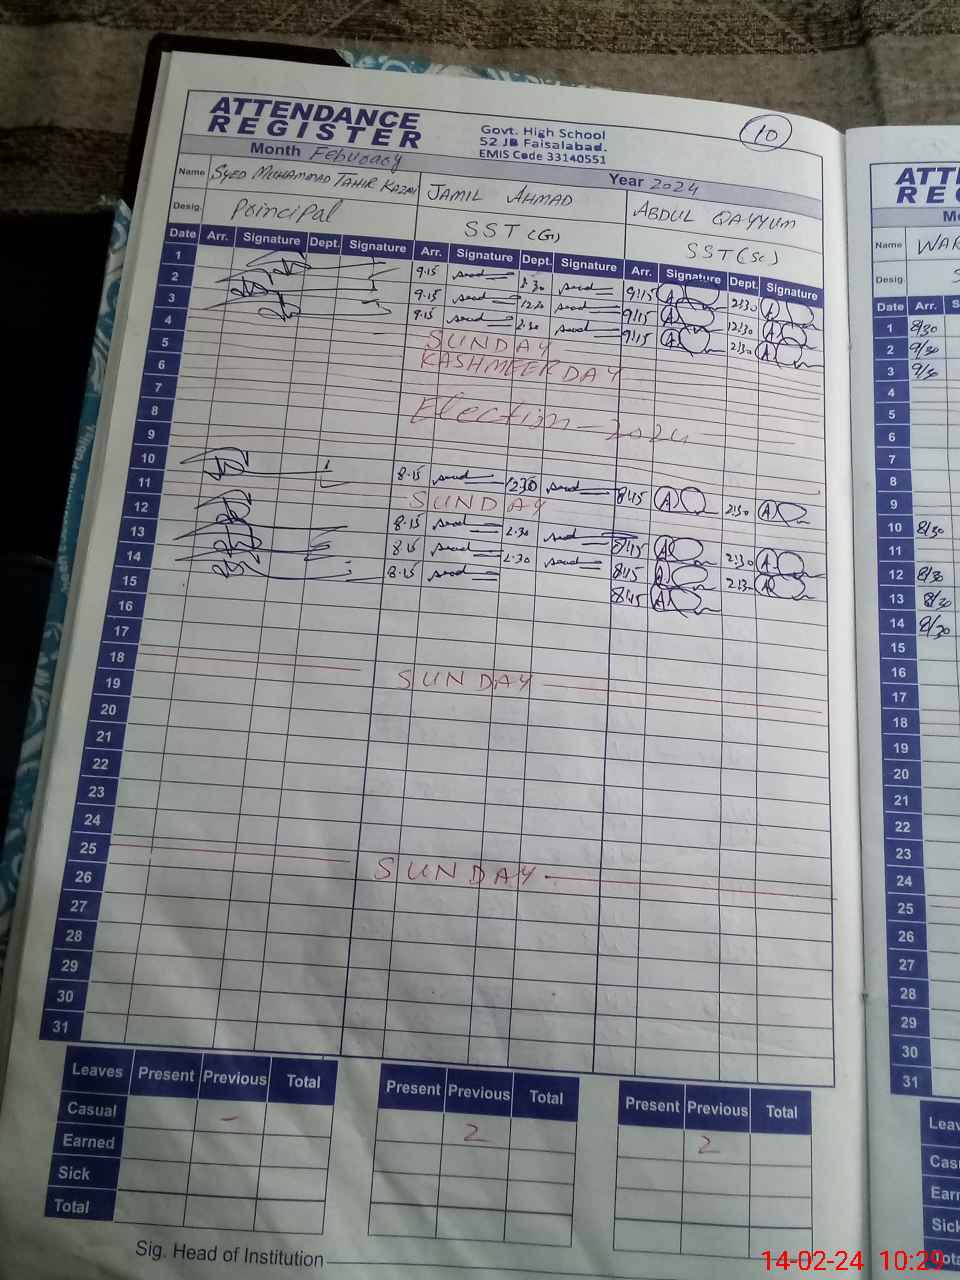 ATTENDANCE
REGISTER
Govt. High School
52 JB Faisalabad.
EMIS Code 33140551
10
Month February
Year 2024
Name SYED MUHAMMAD TAHIR KAZMI JAMIL AHMAD ABDUL QAYYUM
Desig. Principal SST (G) SST (Sc)
Date Arr. Signature Dept. Signature Arr. Signature Dept. Signature Arr. Signature Dept. Signature
1 9.15 2.30 9:15 2:30
2 9.15 12.30 9:15 12:30
3 9.15 2.30 9:15 2:30
4 SUNDAY
5 KASHMEER DAY
6
7 Election - 2024
8
9
10 8.15 1230 8:15 2:30
11 SUNDAY
12 8.15 2.30 8:15 2:30
13 8.15 2.30 8:15 2:3
14 8.15 8:15
15
16
17
18 SUNDAY
19
20
21
22
23
24
25 SUNDAY
26
27
28
29
30
31
Leaves Present Previous Total Present Previous Total Present Previous Total
Casual - 2 2
Earned
Sick
Total
Sig. Head of Institution
ATT
RE
Name WAR
Desig.
Date Arr. S
1 8/30
2 9/30
3 9/30
4
5
6
7
8
9
10 8/30
11
12 8/30
13 8/30
14 8/30
15
16
17
18
19
20
21
22
23
24
25
26
27
28
29
30
31
Leav
Cas
Earn
Sick
Tota
14-02-24 10:29